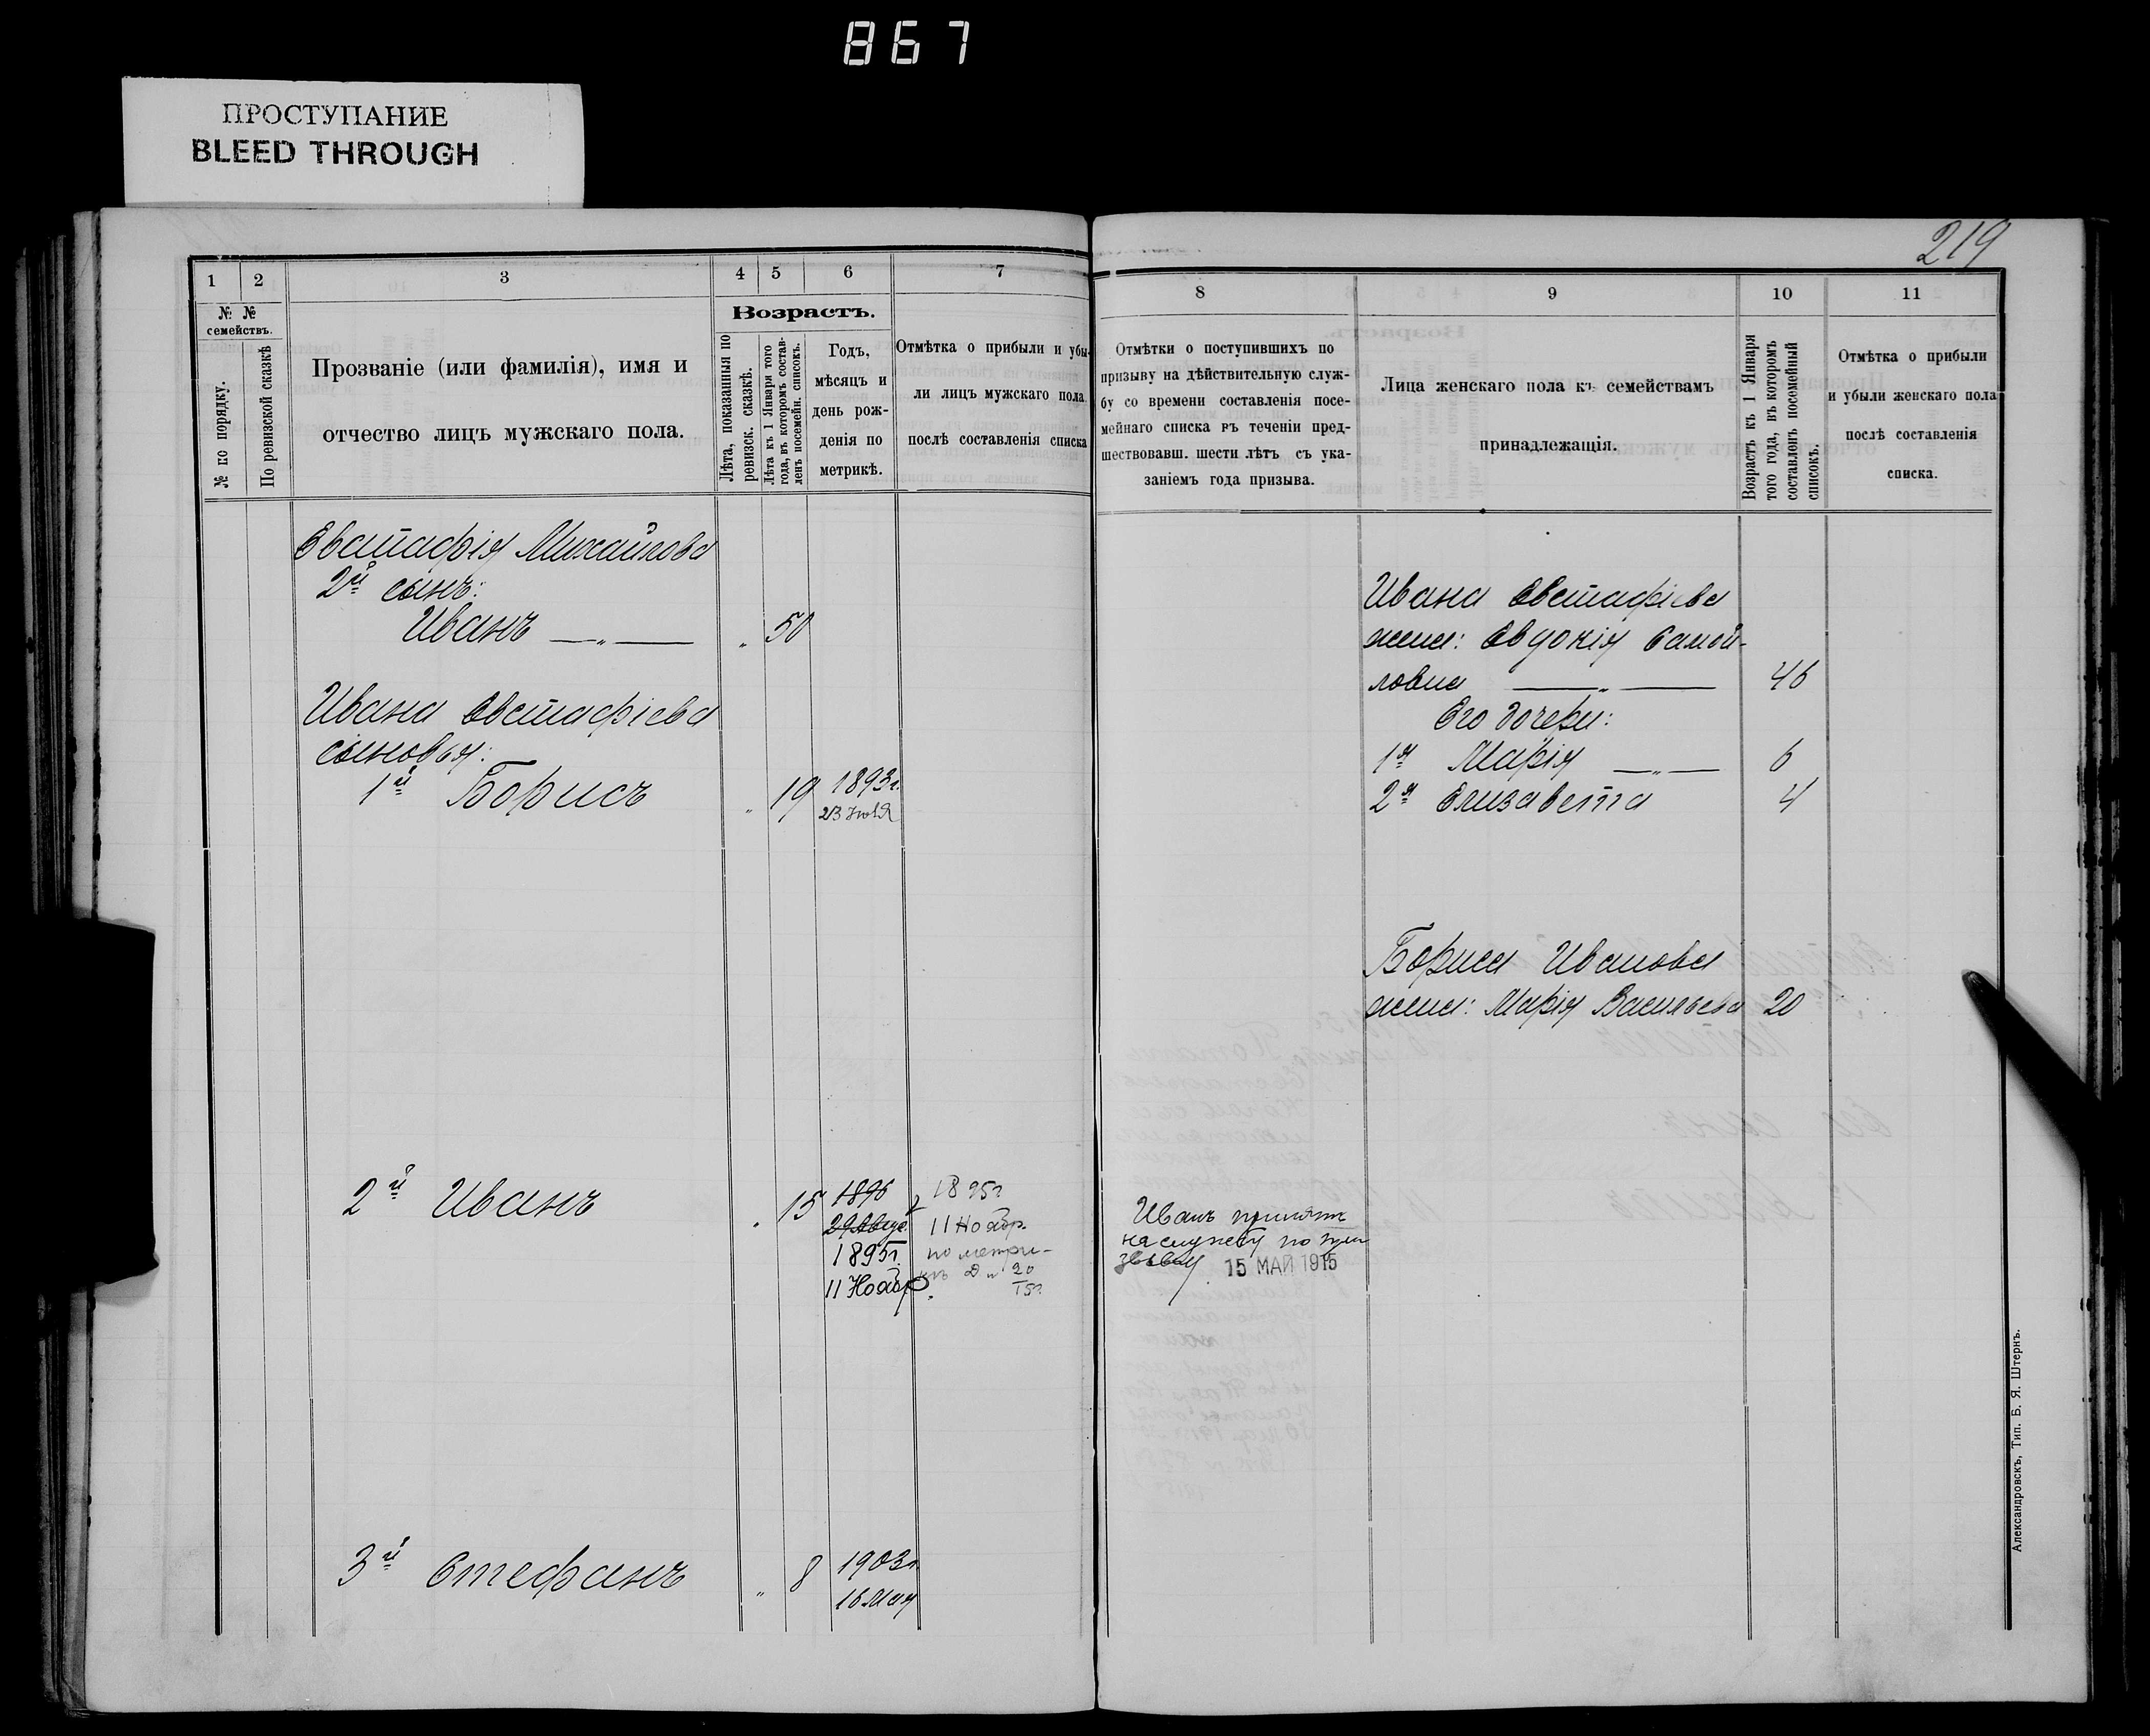 867
ПРОСТУПАНИЕ
BLEED THROUGH
219
1
2
3
4
5
6
7
№ №
семействъ.
№ по порядку.
По ревизской сказкѣ
Прозваніе (или фамилія), имя и
отчество лицъ мужскаго пола.
Возрастъ.
Лѣта, показанныя по
ревизск. сказкѣ.
Лѣта къ 1 Января того
года, въ которомъ состав-
ленъ посемейн. списокъ.
Годъ,
мѣсяцъ и
день рож-
денія по
метрикѣ.
Отмѣтка о прибыли и убы-
ли лицъ мужскаго пола
послѣ составленія списка
Евстафія Михайлова
2й сынъ:
Иванъ — „ — „ 50
Ивана Евстафіева
сыновья:
1й Борисъ „ 19 1893г.
23 Іюля
2й Иванъ „ 15 1896
29 Авгус.
1895г.
11 Ноябр.
1895г
11 Ноябр.
по метри-
20
15г.
3й Стефанъ „ 8 1903г.
16 Мая
8
9
10
11
Отмѣтки о поступившихъ по
призыву на дѣйствительную служ-
бу со времени составленія посе-
мейнаго списка въ теченіи пред-
шествовавш. шести лѣтъ съ ука-
заніемъ года призыва.
Лица женскаго пола къ семействамъ
принадлежащія.
Возрастъ къ 1 Января
того года, въ которомъ
составленъ посемейный
списокъ.
Отмѣтка о прибыли
и убыли женскаго пола
послѣ составленія
списка.
Ивана Евстафіева
жена: Евдокія Самой-
ловна — „ — 46
Его дочери:
1я Марія — „ — 6
2я Елизавета 4
Бориса Иванова
жена: Марія Васильева 20
Иванъ принятъ
на службу по при
зыву 15 МАЙ 1915
Александровскъ, Тип. Б. Я. Штернъ.